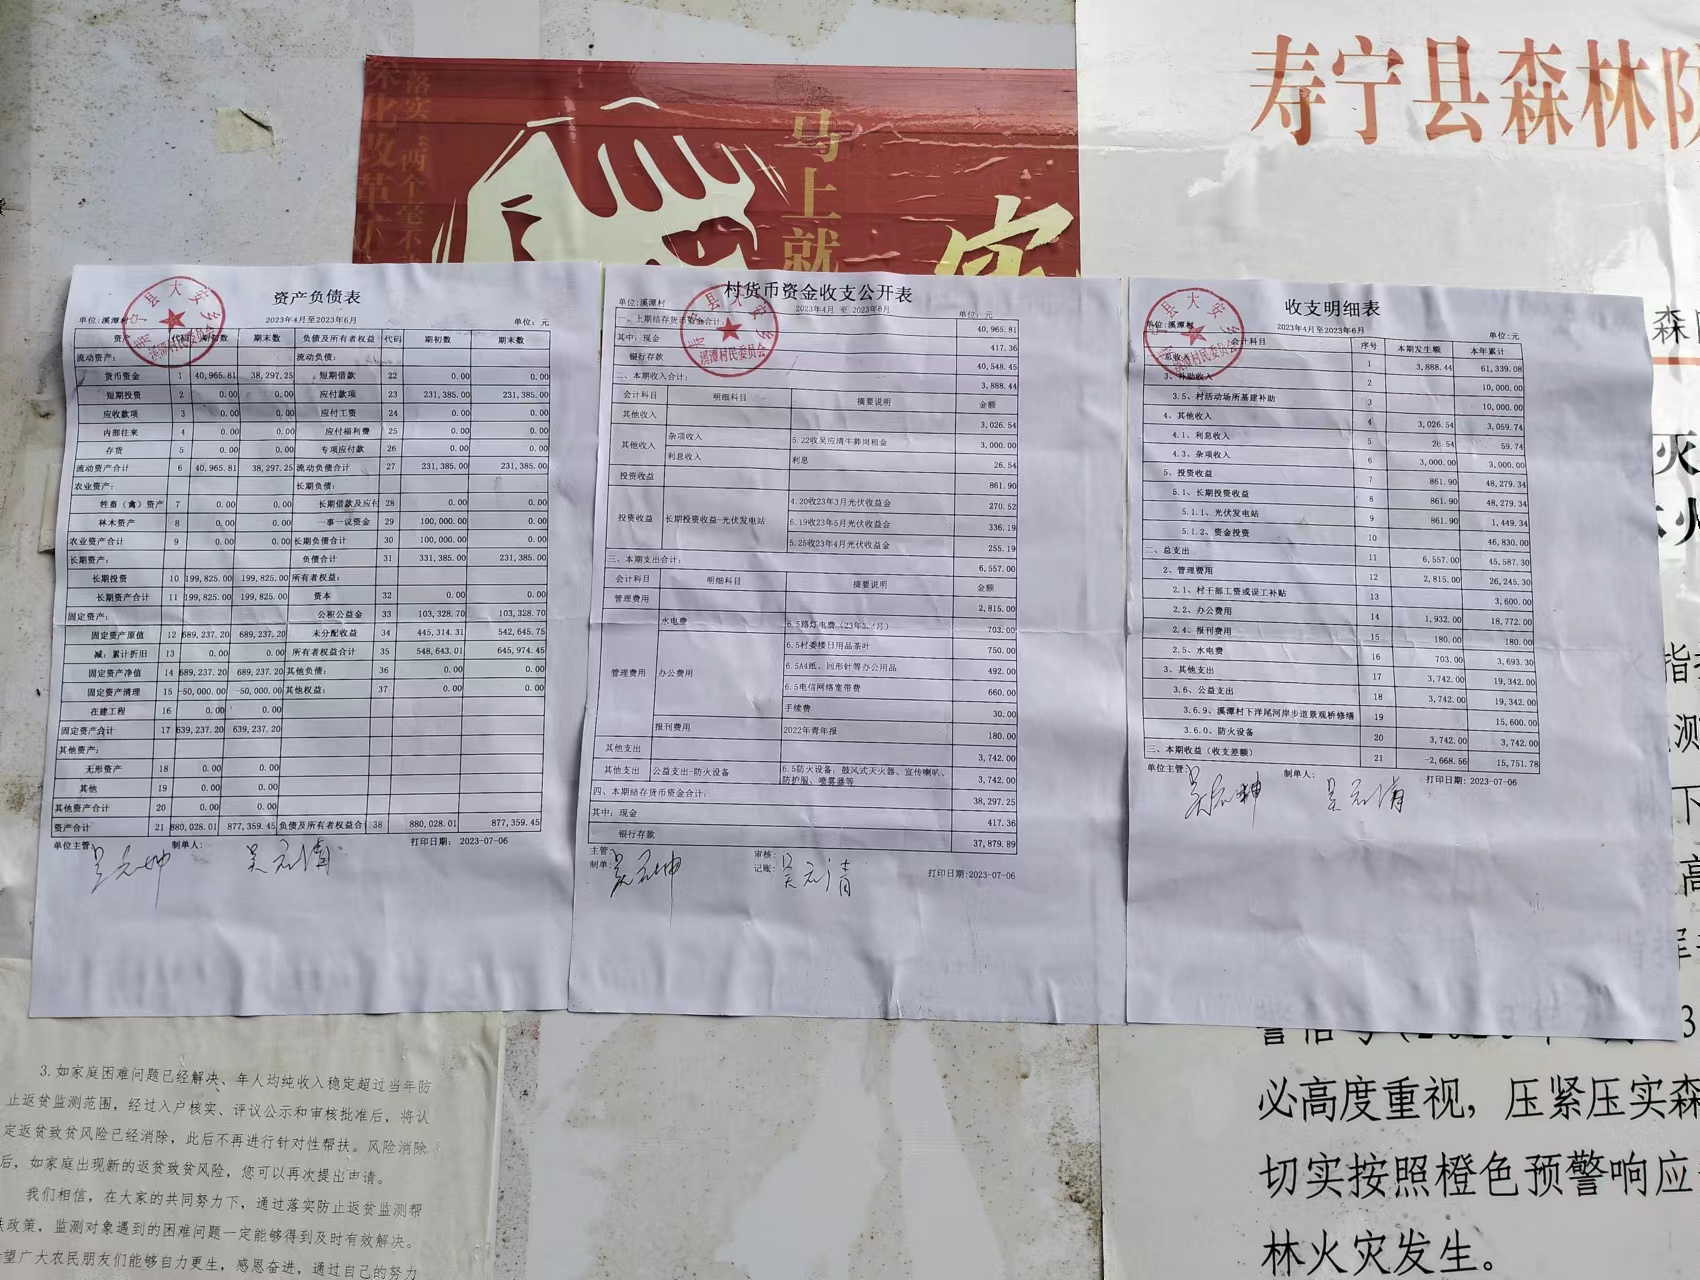 落实“两个毫不
深化改革
马上就
实
寿宁县森林防
资产负债表
单位:溪潭村 2023年4月至2023年6月 单位:元
资产 代码 期初数 期末数 负债及所有者权益 代码 期初数 期末数
流动资产: 流动负债:
货币资金 1 40,965.81 38,297.25 短期借款 22 0.00 0.00
短期投资 2 0.00 0.00 应付款项 23 231,385.00 231,385.00
应收款项 3 0.00 0.00 应付工资 24 0.00 0.00
内部往来 4 0.00 0.00 应付福利费 25 0.00 0.00
存货 5 0.00 0.00 专项应付款 26 0.00 0.00
流动资产合计 6 40,965.81 38,297.25 流动负债合计 27 231,385.00 231,385.00
农业资产: 长期负债:
牲畜(禽)资产 7 0.00 0.00 长期借款及应付 28 0.00 0.00
林木资产 8 0.00 0.00 一事一议资金 29 100,000.00 0.00
农业资产合计 9 0.00 0.00 长期负债合计 30 100,000.00 0.00
长期资产: 负债合计 31 331,385.00 231,385.00
长期投资 10 199,825.00 199,825.00 所有者权益:
长期资产合计 11 199,825.00 199,825.00 资本 32 0.00 0.00
固定资产: 公积公益金 33 103,328.70 103,328.70
固定资产原值 12 689,237.20 689,237.20 未分配收益 34 445,314.31 542,645.75
减:累计折旧 13 0.00 0.00 所有者权益合计 35 548,643.01 645,974.45
固定资产净值 14 689,237.20 689,237.20 其他负债: 36 0.00 0.00
固定资产清理 15 -50,000.00 -50,000.00 其他权益: 37 0.00 0.00
在建工程 16 0.00 0.00
固定资产合计 17 639,237.20 639,237.20
其他资产:
无形资产 18 0.00 0.00
其他 19 0.00 0.00
其他资产合计 20 0.00 0.00
资产合计 21 880,028.01 877,359.45 负债及所有者权益合 38 880,028.01 877,359.45
单位主管: 制单人: 打印日期: 2023-07-06
吴元坤 吴元清
村货币资金收支公开表
单位:溪潭村 2023年4月 至 2023年6月 单位:元
一、上期结存货币资金合计: 40,965.81
其中:现金 417.36
银行存款 40,548.45
二、本期收入合计: 3,888.44
会计科目 明细科目 摘要说明 金额
其他收入 3,026.54
其他收入 杂项收入 5.22收吴应清牛肺岗租金 3,000.00
利息收入 利息 26.54
投资收益 861.90
投资收益 长期投资收益-光伏发电站 4.20收23年3月光伏收益金 270.52
6.19收23年5月光伏收益金 336.19
5.25收23年4月光伏收益金 255.19
三、本期支出合计: 6,557.00
会计科目 明细科目 摘要说明 金额
管理费用 2,815.00
管理费用 水电费 6.5路灯电费(23年3.4月) 703.00
办公费用 6.5村委楼日用品茶叶 750.00
6.5A4纸、回形针等办公用品 492.00
6.5电信网络宽带费 660.00
手续费 30.00
报刊费用 2022年青年报 180.00
其他支出 3,742.00
其他支出 公益支出-防火设备 6.5防火设备:鼓风式灭火器、宣传喇叭、防护服、喷雾器等 3,742.00
四、本期结存货币资金合计: 38,297.25
其中:现金 417.36
银行存款 37,879.89
主管: 审核:
制单: 吴元坤 记账: 吴元清 打印日期:2023-07-06
收支明细表
单位:溪潭村 2023年4月至2023年6月 单位:元
会计科目 序号 本期发生额 本年累计
总收入 1 3,888.44 61,339.08
3、补助收入 2 10,000.00
3.5、村活动场所基建补助 3 10,000.00
4、其他收入 4 3,026.54 3,059.74
4.1、利息收入 5 26.54 59.74
4.3、杂项收入 6 3,000.00 3,000.00
5、投资收益 7 861.90 48,279.34
5.1、长期投资收益 8 861.90 48,279.34
5.1.1、光伏发电站 9 861.90 1,449.34
5.1.2、资金投资 10 46,830.00
二、总支出 11 6,557.00 45,587.30
2、管理费用 12 2,815.00 26,245.30
2.1、村干部工资或误工补贴 13 3,600.00
2.2、办公费用 14 1,932.00 18,772.00
2.4、报刊费用 15 180.00 180.00
2.5、水电费 16 703.00 3,693.30
3、其他支出 17 3,742.00 19,342.00
3.6、公益支出 18 3,742.00 19,342.00
3.6.9、溪潭村下洋尾河岸步道景观桥修缮 19 15,600.00
3.6.0、防火设备 20 3,742.00 3,742.00
三、本期收益(收支差额) 21 -2,668.56 15,751.78
单位主管: 制单人: 打印日期: 2023-07-06
吴元坤 吴元清
寿宁县大安乡
溪潭村民委员会
寿宁县大安乡
溪潭村民委员会
寿宁县大安乡
溪潭村民委员会
3.如家庭困难问题已经解决、年人均纯收入稳定超过当年防
止返贫监测范围,经过入户核实、评议公示和审核批准后,将认
定返贫致贫风险已经消除,此后不再进行针对性帮扶。风险消除
后,如家庭出现新的返贫致贫风险,您可以再次提出申请。
我们相信,在大家的共同努力下,通过落实防止返贫监测帮
扶政策,监测对象遇到的困难问题一定能够得到及时有效解决。
希望广大农民朋友们能够自力更生,感恩奋进,通过自己的努力
森
灭
指
测
下
高
3
必高度重视,压紧压实森
切实按照橙色预警响应
林火灾发生。